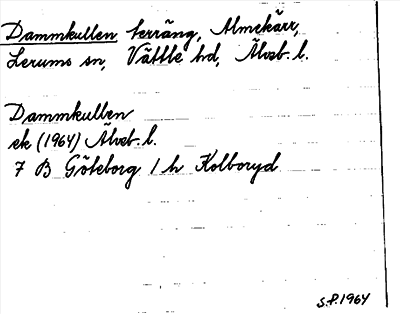 Dammkullen terräng, Almekärr,
Lerums sn, Vättle hd, Älvsb. l.
Dammkullen
ek (1964) Älvsb. l.
7 B Göteborg 1 h Kolboryd
S.P. 1964